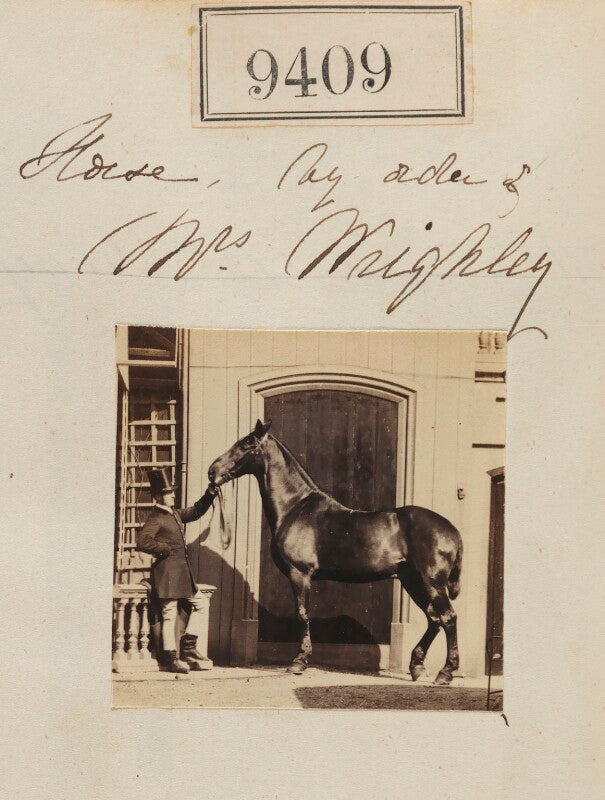 9409
Horse, by order of
Mrs. Wrighley